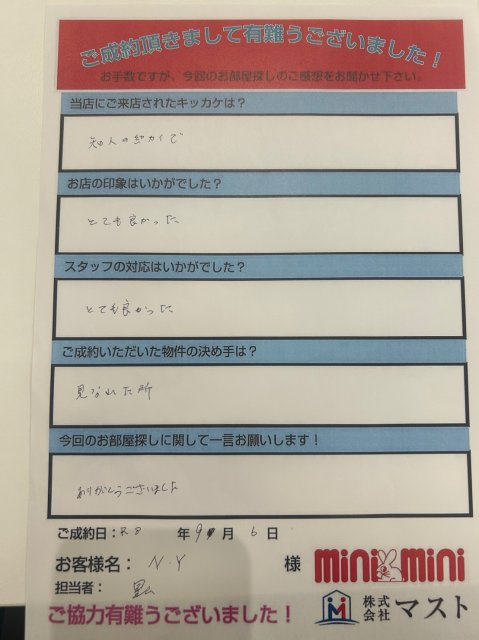 ご成約頂きまして有難うございました！
お手数ですが、今回のお部屋探しのご感想をお聞かせ下さい。
当店にご来店されたキッカケは？
知人の紹介で
お店の印象はいかがでした？
とても良かった
スタッフの対応はいかがでした？
とても良かった
ご成約いただいた物件の決め手は？
見なれた所
今回のお部屋探しに関して一言お願いします！
ありがとうございました
ご成約日：R8 年 9 月 6 日
お客様名： N.Y 様
担当者：
ご協力有難うございました！
mini mini
株式会社 マスト